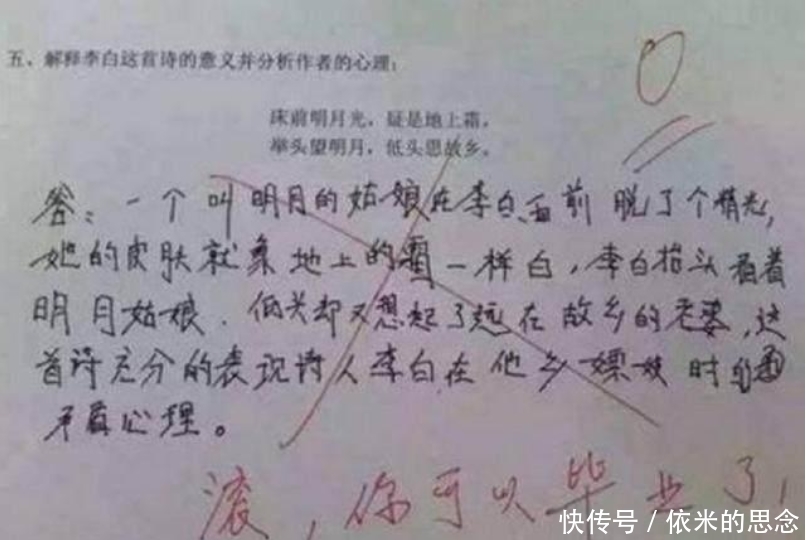 五、解释李白这首诗的意义并分析作者的心理：
床前明月光，疑是地上霜。
举头望明月，低头思故乡。
答：一个叫明月的姑娘在李白面前脱了个精光，
她的皮肤就象地上的霜一样白，李白抬头看着
明月姑娘．低头却又想起了远在故乡的老婆，这
首诗充分的表现诗人李白在他乡嫖妓时的
矛盾心理。
滚，你可以毕业了！
快传号/依米的思念